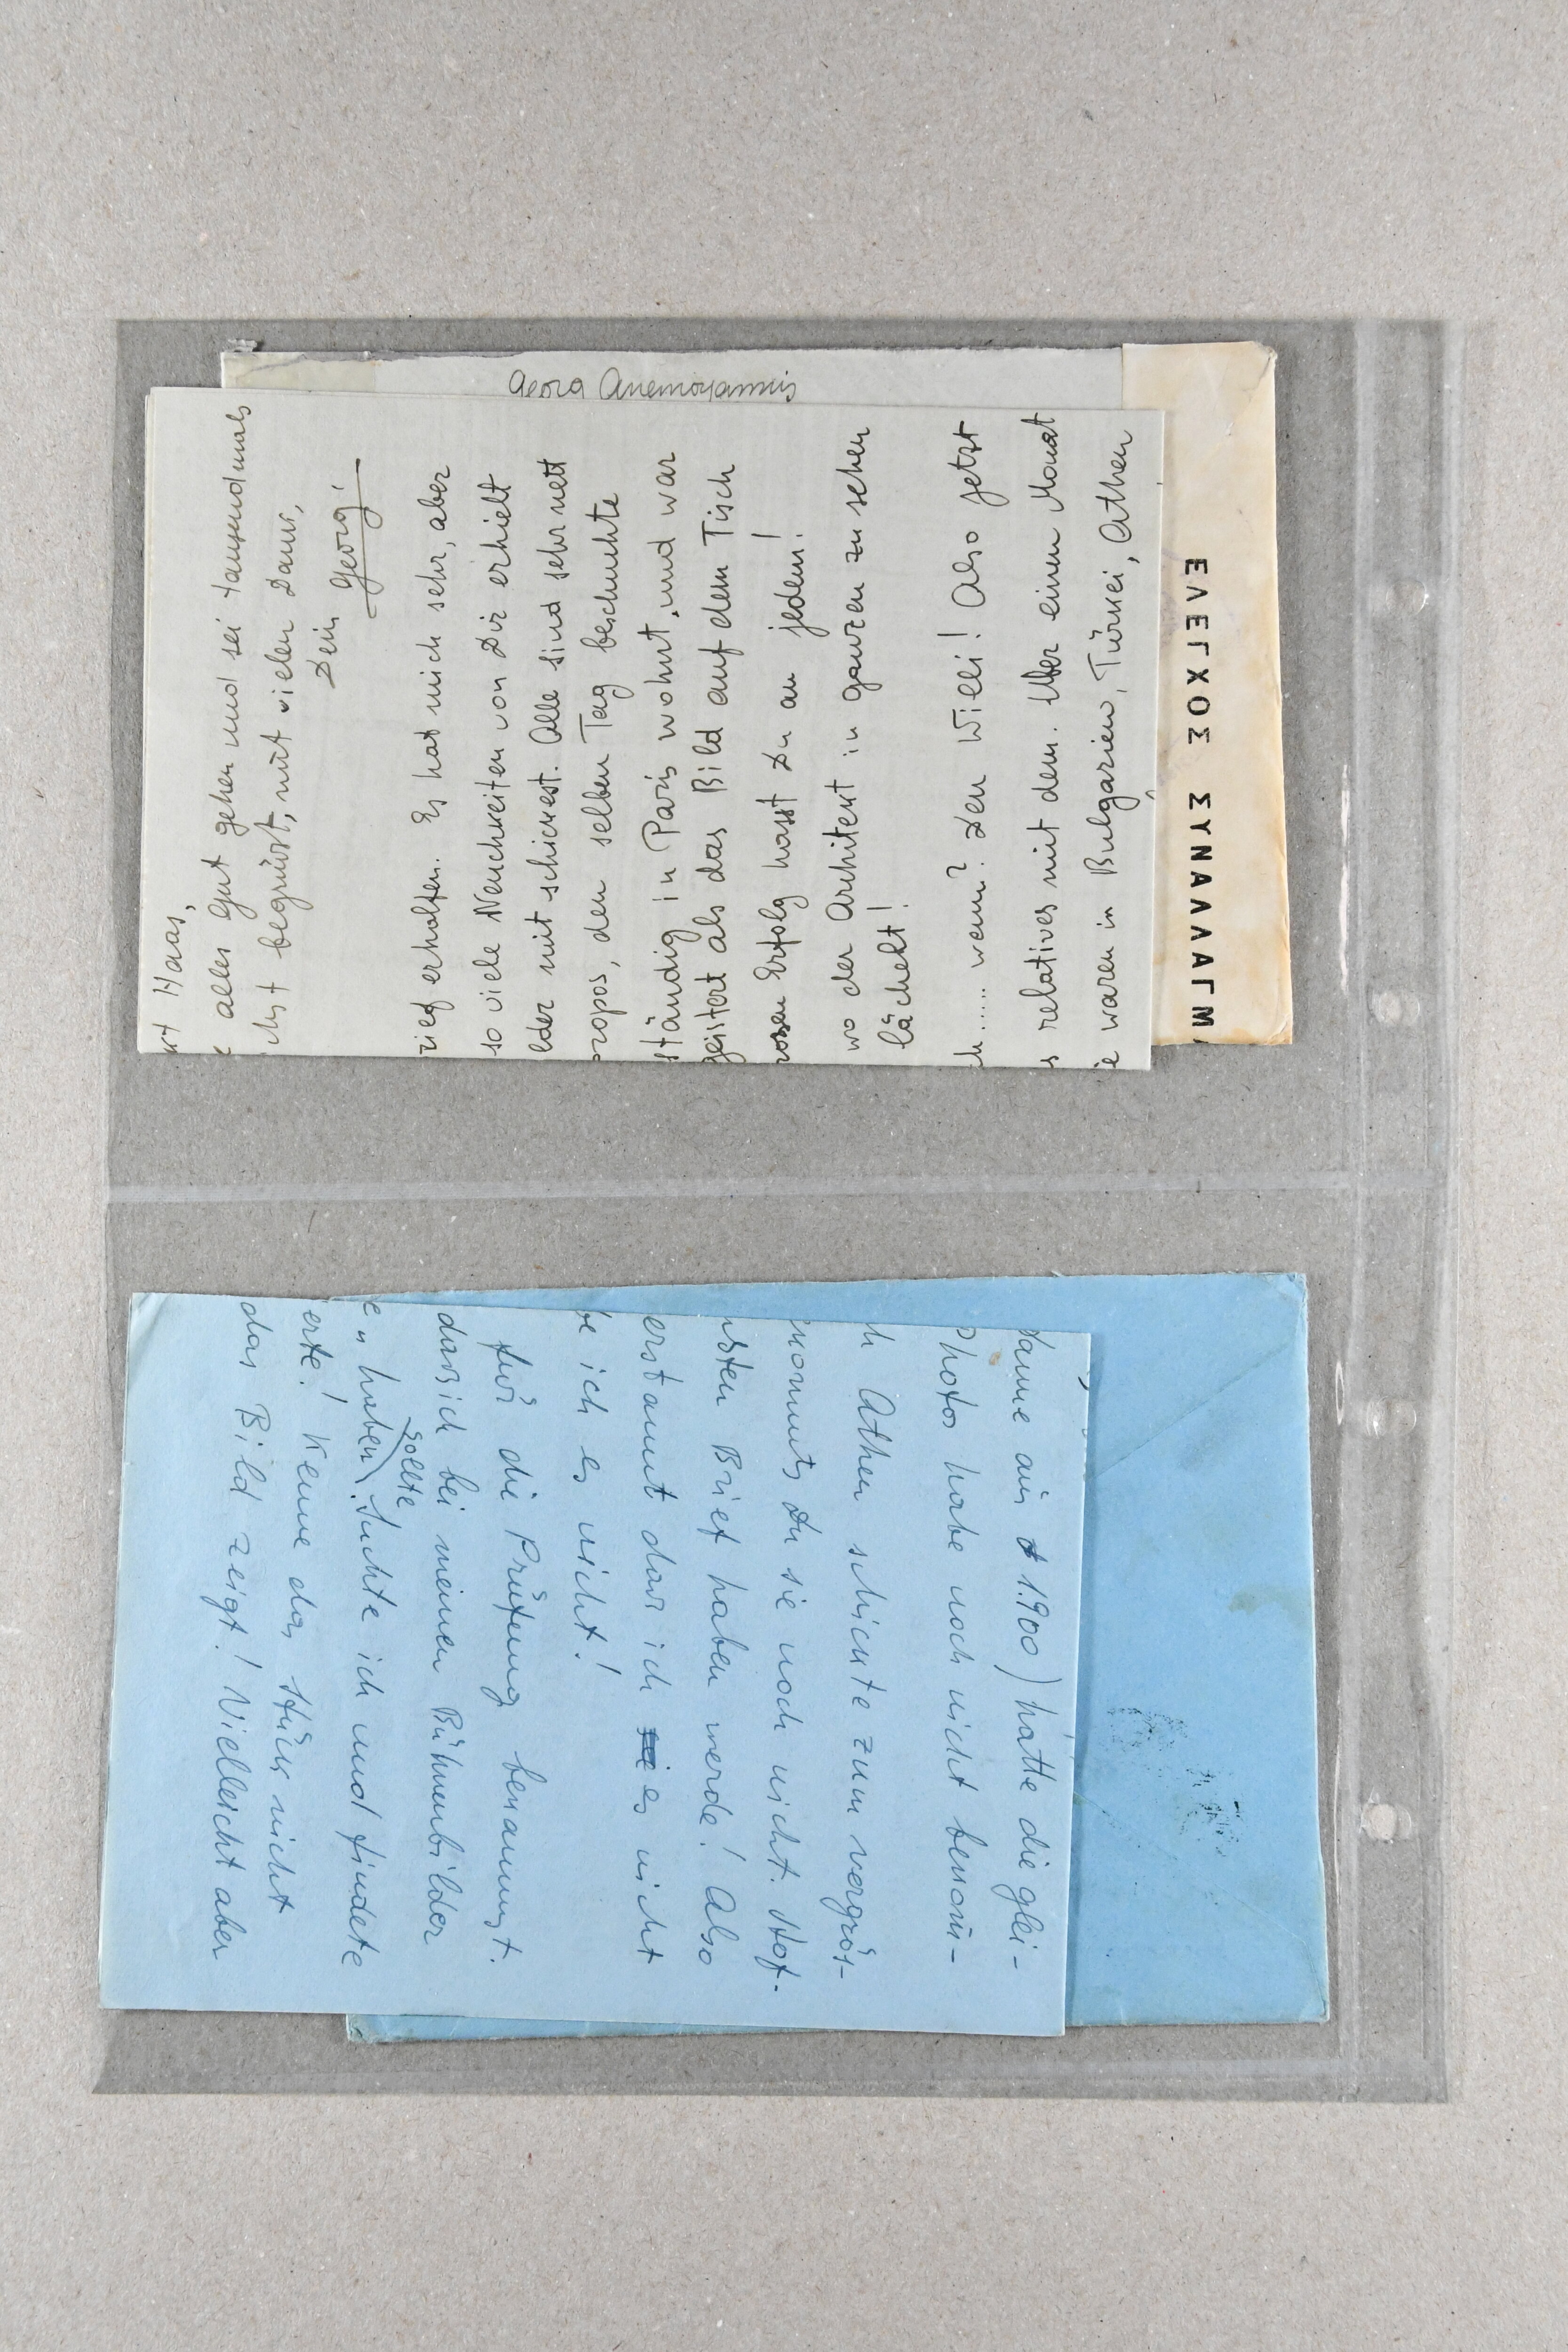 Georg Anemoyannis
Haas,
alles gut gehen und sei tausendmals
begrüsst, mit vielen Dank,
Dein
Georg
erhalten. Es hat mich sehr, aber
so viele Neuchkeiten von Dir erhielt
lder mit schickest. Alle sind sehr nett
propos, den selben Tag beschuhte
ständig in Paris wohnt, und war
geistert als das Bild auf dem Tisch
rossen Erfolg hasst Du an jedem!
wo der Architekt in ganzen zu sehen
lächelt!
ch ..... wem? Den Willi! Also jetzt
s relatives mit dem. Über einen Monat
e waren in Bulgarien, Türkei, Athen
ΕΛΕΓΧΟΣ ΣΥΝΑΛΛΑΓΜ
Dame aus 1900) hatte die glei-
Photos habe noch nicht bekom-
h Athen schickte zum vergrös-
kommts Du sie noch nicht. Hof-
hsten Brief haben werde! Also
erstaunt dass ich es nicht
be ich es nicht!
für die Prüfung bekannt.
dass ich bei meinen Bühnenbilder
sollte
e" haben. Suchte ich und findete
erte! Kenne das Stück nicht
das Bild zeigt! Vielleicht aber